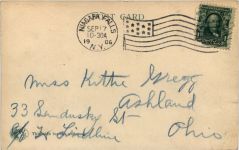 ST CARD
NIAGARA FALLS
SEP 17
10-30A
1906
N.Y.
Miss Kittie Gregg
Ashland
33 Sandusky St
Ohio